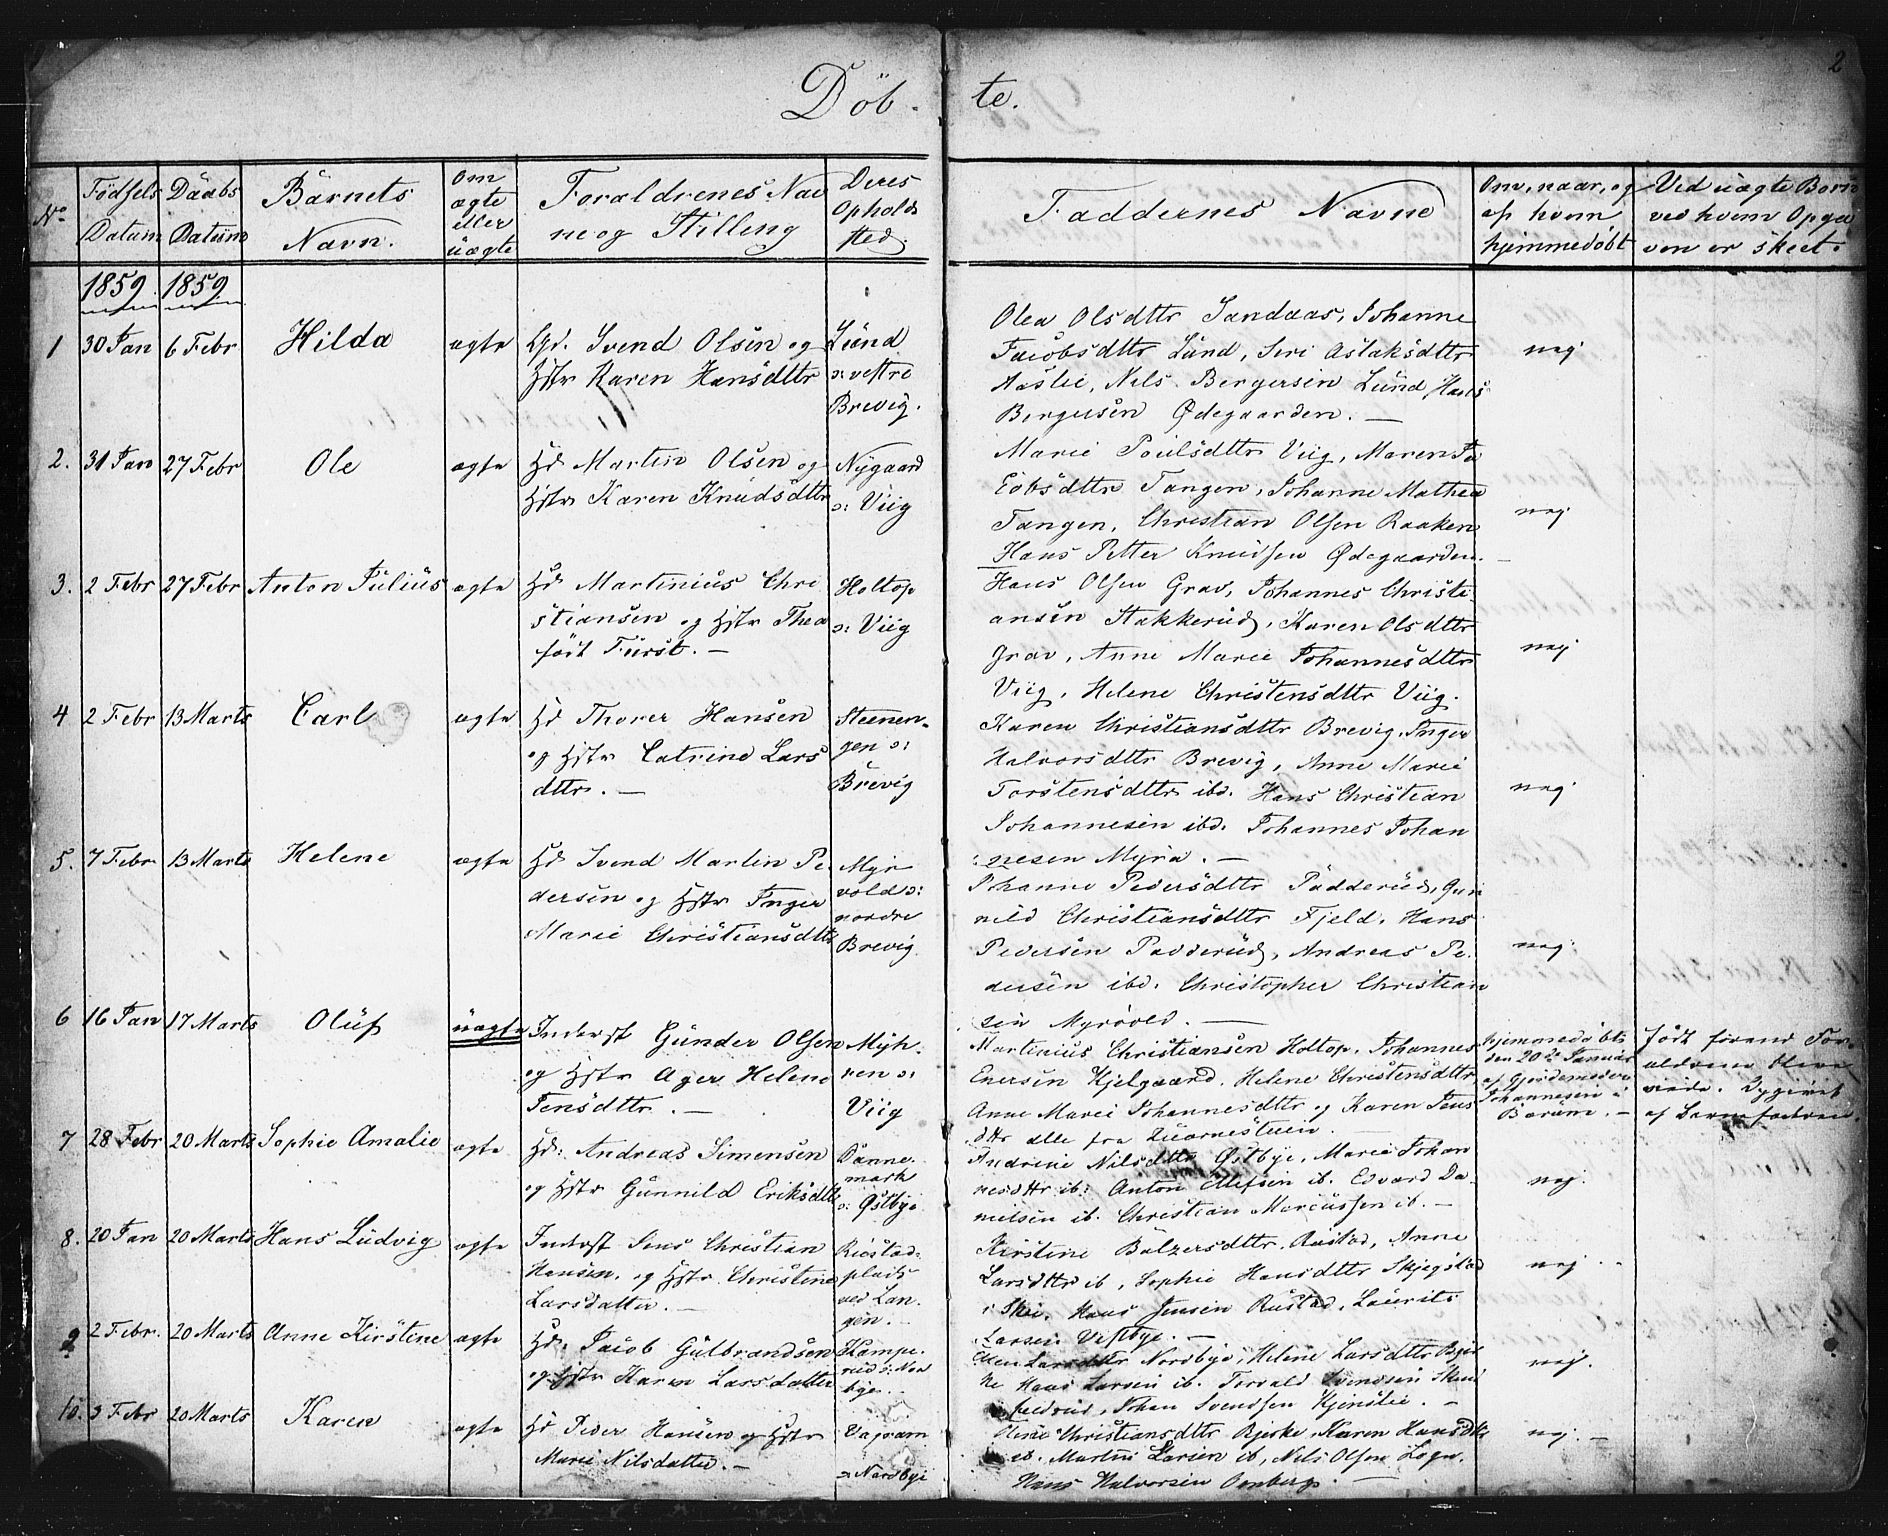 2
Döb- te.
No
Födsels Datum
Daabs Datum
Barnets Navn.
Om ægte eller uægte
Forældrenes Nav
ne og Stilling
Deres Opholds sted.
Faddernes Navne
Om, naar, og af hvem hjemmedøbt
Ved uægte Børn ved hvem Opgaven er skeet.
1859. 1859.
1 30 Jan 6 Febr Hilda ægte Gd. Svend Olsen og
Hstr Karen Hansdttr
Lund
ɔ: vestre
Brevig.
Olea Olsdttr Sandaas, Johanne
Jacobsdttr Lund, Siri Aslaksdttr
Aaslie, Nils Bergersen Lund, Hans
Bergersen Ødegaarden. —
nej
2. 31 Jan 27 Febr Ole ægte Hd Martin Olsen og
Hstr Karen Knudsdttr
Nygaard
ɔ: Viig
Marie Poulsdttr Viig, Maren Ja
cobsdttr Tangen, Johanne Mathea
Tangen, Christian Olsen Raaken
Hans Petter Knudsen Ødegaarden. —
nej
3. 2 Febr 27 Febr Anton Julius ægte Hd Martinius Chri
stiansen og Hstr Thea
föit Fürst. —
Holtop
ɔ: Viig
Hans Olsen Grav, Johannes Christi
ansen Stakkerud, Karen Olsdttr
Grav, Anne Marie Johannesdttr
Viig, Helene Christensdttr Viig.
nej
4 2 Febr 13 Marts Carl ægte Hd Thorer Hansen
og Hstr Catrine Lars
dttr. —
Steenen-
gen ɔ:
Brevig
Karen Christiansdttr Brevig, Inger
Halvorsdttr Brevig, Anne Marie
Torstensdttr ibd. Hans Christian
Johannesen ibd. Johannes Johan
nesen Myra. —
nej
5. 7 Febr 13 Marts Helene ægte Hd Svend Martin Pe
dersen og Hstr Inger
Marie Christiansdttr
Myr
vold ɔ:
nordre
Brevig
Johanne Pedersdttr Padderud, Gun
nild Christiansdttr Fjeld, Hans
Pedersen Padderud, Andreas Pe
dersen ibd. Christopher Christian
sen Myrvold. —
nej
6 16 Jan 17 Marts Oluf uægte Inderst Gunder Olsen
og Hstr Ager Helene
Jensdttr. —
Myh-
ren ɔ:
Viig
Martinius Christiansen Holtop, Johannes
Enersen Kjelgaard, Helene Christensdttr
Anne Marie Johannesdttr og Karen Jens
dttr alle fra
hjemmedøbt
den 20de Januar
af Gjordemoder
Johannesen i
Bærum. —
født förend For-
ældrene bleve
viede. Opgivet
af Barnefaderen.
7 28 Febr 20 Marts Sophie Amalie ægte Hd: Andreas Simensen
og Hstr Gunnild Eriksdttr
Danne-
mark
ɔ: Østbye
Andrine Nilsdttr Østbye, Marie Johan
nesdttr ib: Anton Ellefsen ib. Edvard Da-
nielsen ib. Christian Marcussen ib. —
nej.
8. 20 Jan 20 Marts Hans Ludvig ægte Inderst Jens Christian
Hansen, og Hstr Christine
Larsdatter. —
Rustad-
plads
ved Lan-
gen.
Kirstine Balzersdttr. Rustad, Anne
Larsdttr ib, Sophie Hansdttr Skjegstad
i Skie, Hans Jensen Rustad, Laurits
Larsen Vestbye. —
nej.
9 2 Febr. 20 Marts Anne Kirstine ægte Hd. Jacob Gulbrandsen
og Hstr Karen Larsdatter
Kampe-
rud ɔ: Nor
bye.
Ellen Larsdttr Nordbye, Helene Larsdttr Bjer
ke Hans Larsen ib. Torvald Svendsen
Johan Svendsen Kjenslie. —
nej.
10. 3 Febr 20 Marts Karen ægte Hd Peder Hansen og Hstr
Marie Nilsdatter. —
Vaj
ɔ: Nordbye
Christiansdttr Bjerke, Karen Hansdttr
ib. Martin Larsen ib, Nils Olsen
Hans Halvorsen
nej. —